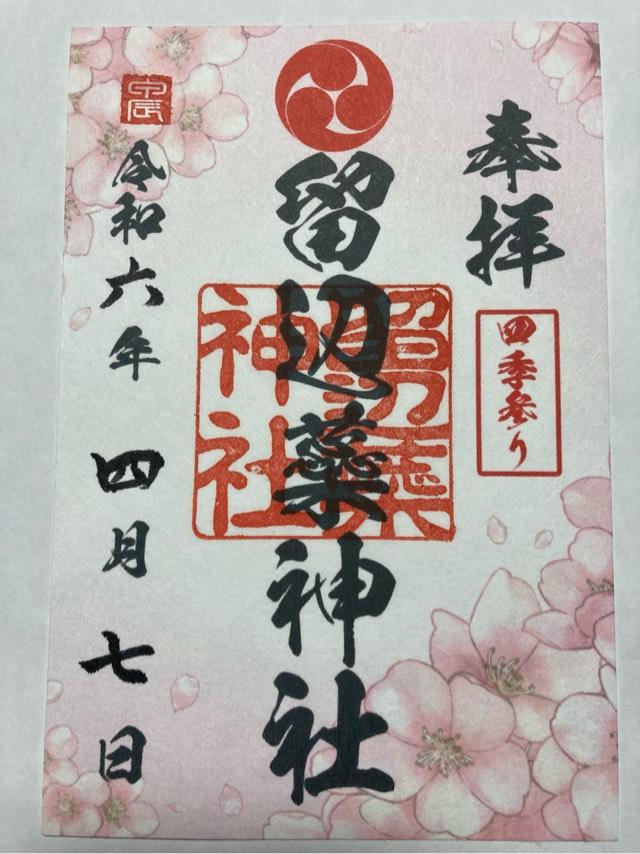 奉拝
四季参り
留辺蘂神社
留辺蘂
神社
甲辰
令和六年 四月 七日